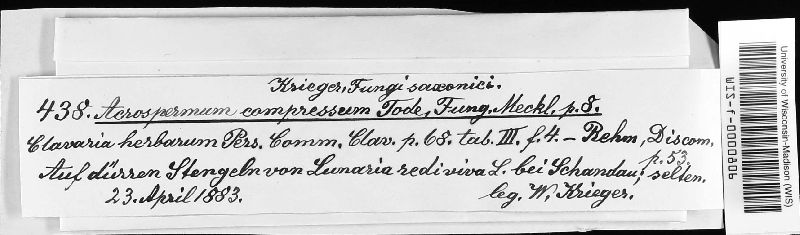 Krieger, Fungi saxonici.
438. Acrospermum compressum Tode, Fung. Meckl. p. 8.
Clavaria herbarum Pers. Comm. Clav. p. 68. tab. III. f. 4. – Rehm, Discom. p. 53.
Auf dürren Stengeln von Lunaria rediviva L. bei Schandau; selten.
23. April 1883. leg. W. Krieger.
University of Wisconsin-Madison (WIS)
WIS-F-0000806